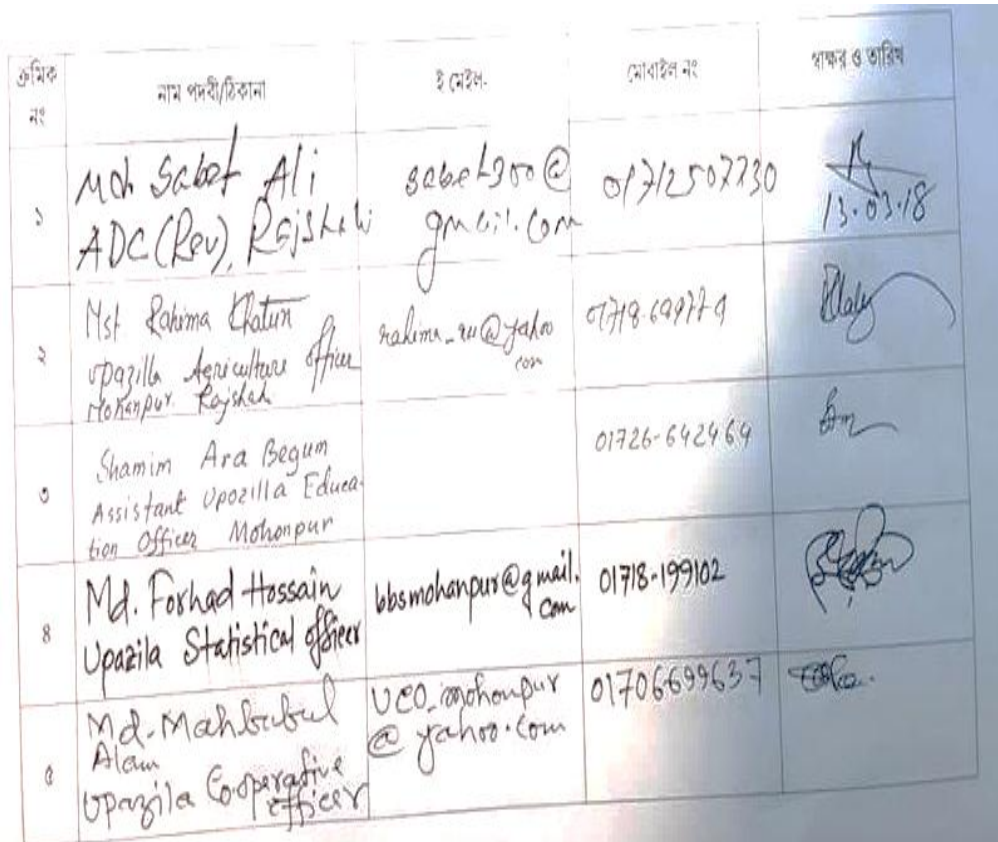 ক্রমিক নং
নাম পদবী/ঠিকানা
ই মেইল
মোবাইল নং
স্বাক্ষর ও তারিখ
১
Md. Sabet Ali
ADC (Rev), Rajshahi
gmail.com
01712507730
13.03.18
২
Mst Rahima Khatun
Upazilla Agriculture Officer
Mohanpur Rajshahi
rahima_au@yahoo
com
৩
Shamim Ara Begum
Assistant Upozilla Educa-
tion Officer Mohonpur
01726-642464
৪
Md. Forhad Hossain
Upazila Statistical officer
bbsmohanpur@gmail.
com
01718-199102
৫
Md. Mahbubul
Alam
Upazila Co-operative
officer
UCO_mohonpur
@yahoo.com
01706699637